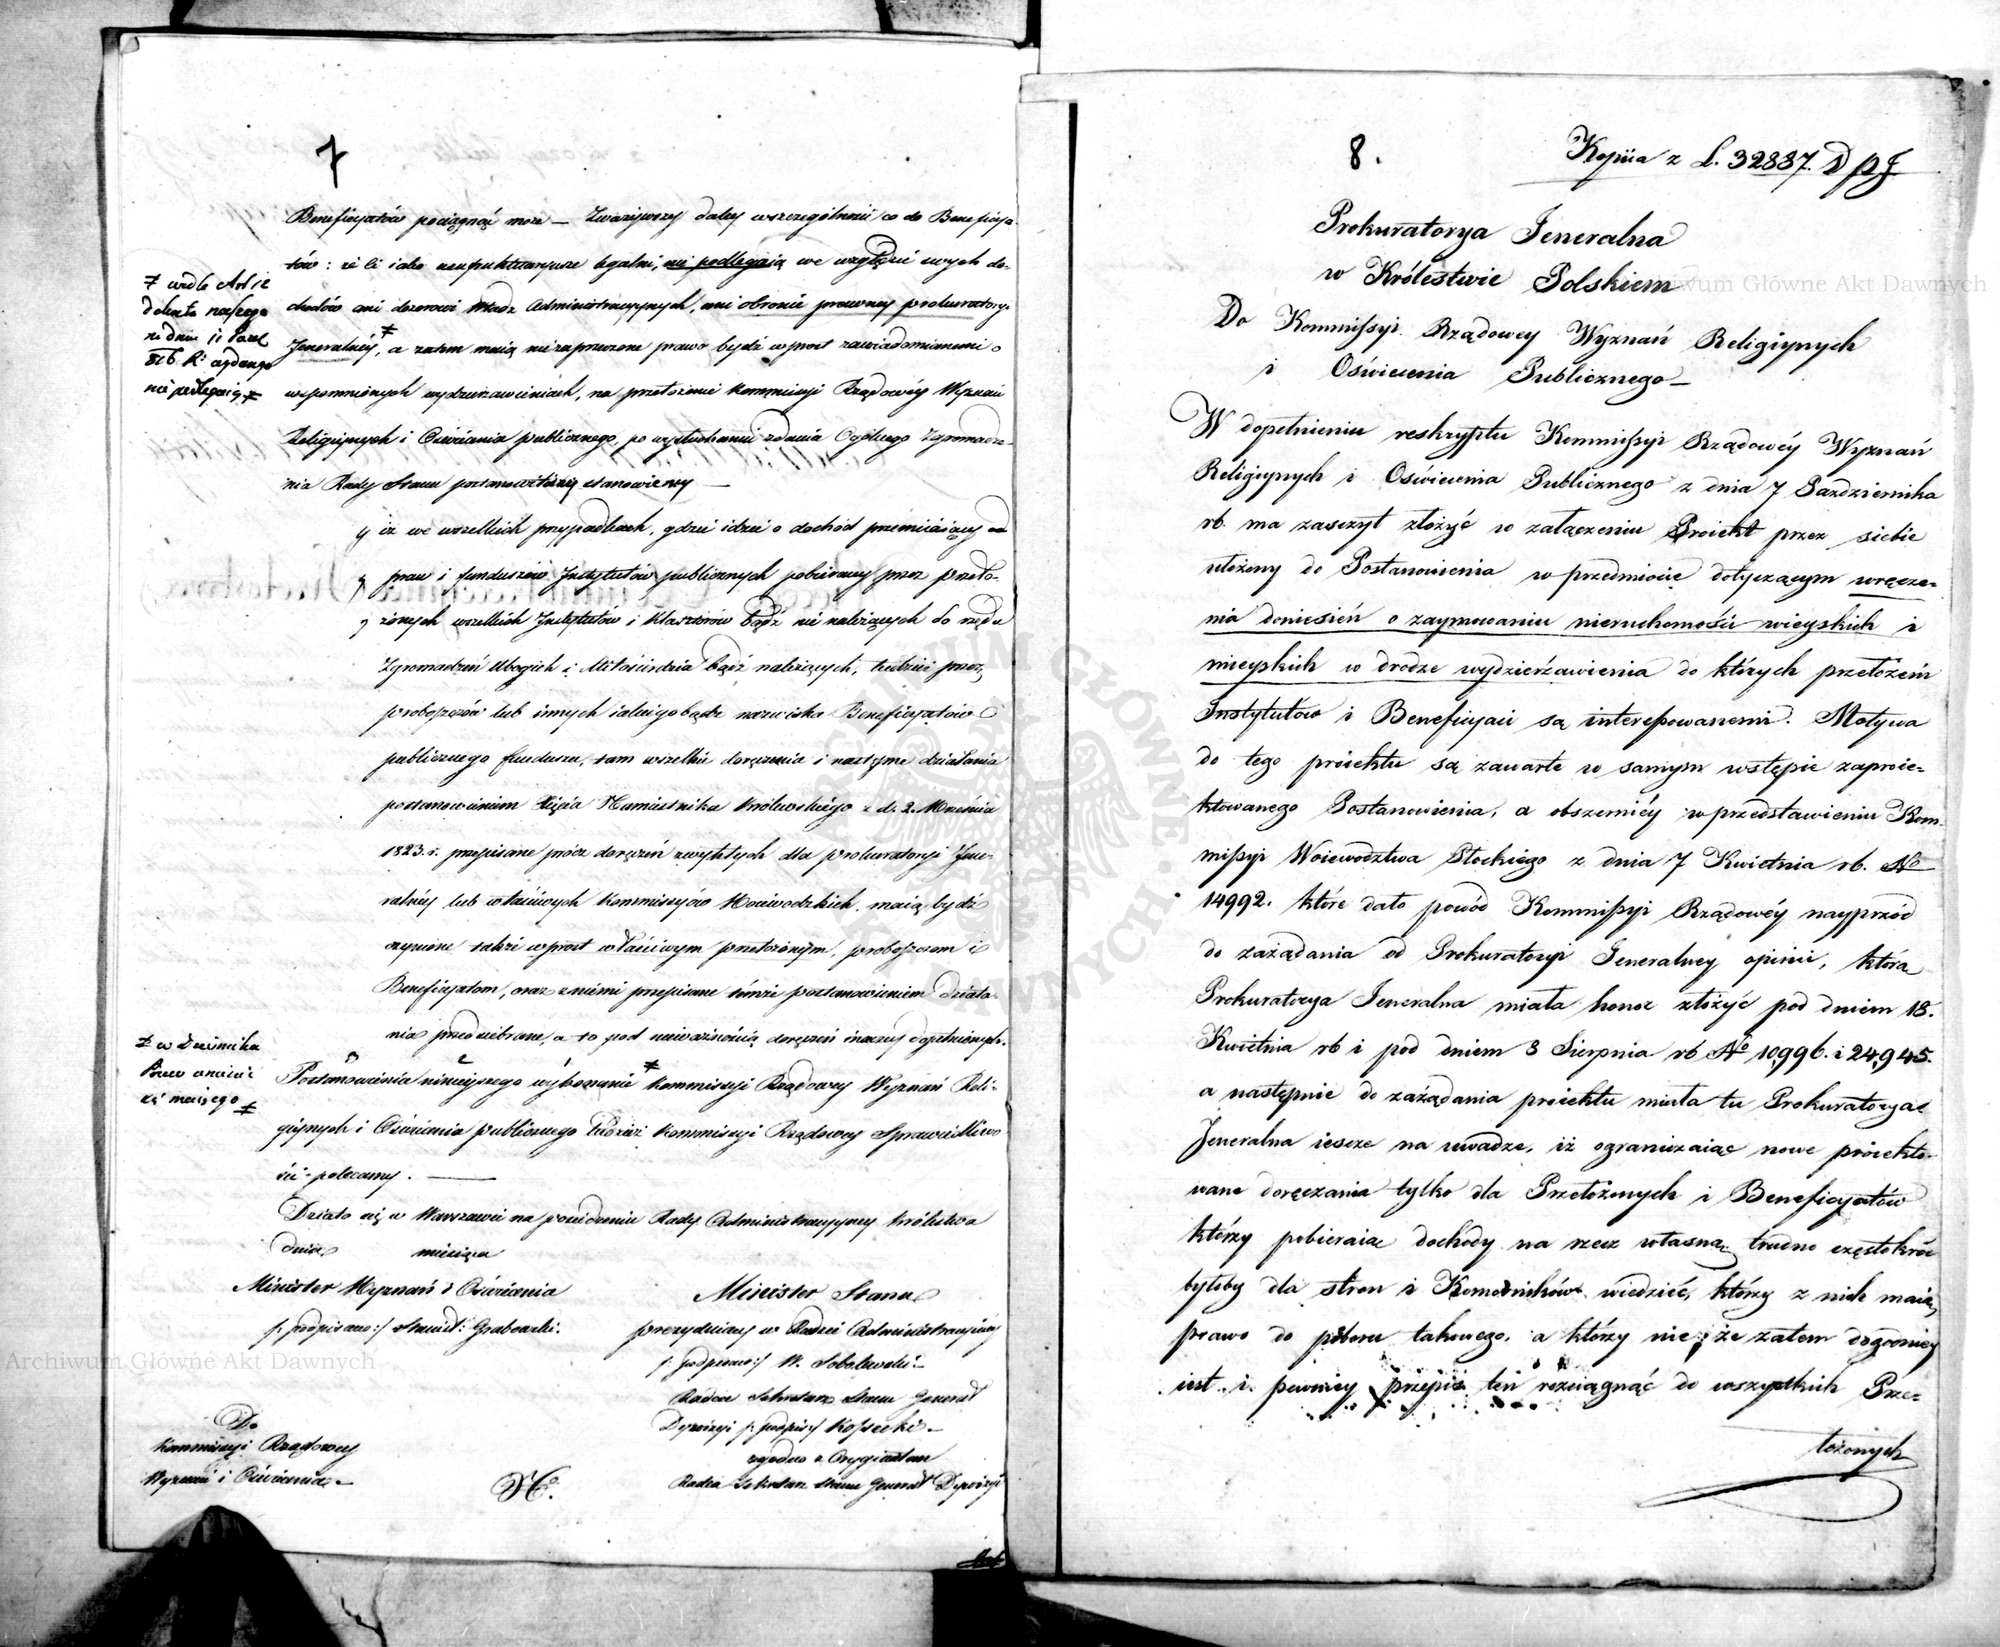 7
Beneficyatów pociągnąć może — Zważywszy daley wszczególności co do Beneficya-
tów: iż ci iako usufruktuaryusze legalni, nie podlegaią we względzie swych do-
chodów ani dozorowi Władz Administracyjnych, ani obronie prawney prokuratoryi
Jeneralnéy ≠, a zatem maią niezaprzeczone prawo bydź wprost zawiadomianemi o
wspomnionych wydzierżawieniach, na przełożenie Kommissyi Rządowéy Wyznań
Religijnych i Oświécenia publicznego, po wysłuchaniu zdania Ogólnego Zgromadze-
nia Rady Stanu postanowiliśmy i stanowiemy —
≠ wedle Art 12
dekretu naszego
z dnia 11 Paźd
816 R. wydanego
nie podlegaią ≠
iż we wszelkich przypadkach, gdzie idzie o dochód przemiiaiący od
praw i funduszów Instytutów publicznych pobierany przez Przeło-
żonych wszelkich Instytutów i Klasztorów bądź nie należących do rzędu
Zgromadzeń Ubogich i Miłosierdzia bądź należących, tudzież przez
proboszczów lub innych iakiegobądź nazwiska Beneficyatów
publicznego funduszu, tam wszelkie doręczenia i następne działania
postanowieniem Xięcia Namiestnika Królewskiego z d. 2. Września
1823. r. przepisane prócz doręczeń zwykłych dla prokuratoryi Jene-
ralnéy lub właściwych Kommissyów Woiewodzkich, maią bydź
czynione także wprost właściwym przełożonym, proboszczom i
Beneficyatom, oraz z niemi przepisane témże postanowieniem działa-
nia przedsiebrane, a to pod nieważnością doręczeń inaczey dopełnionych.
≠ w Dzienniku
Praw umieścić
się maiącego ≠
Postanowienia ninieyszego wykonanie ≠ Kommissyi Rządowey Wyznań Reli-
giynych i Oświécenia publicznego tudzież Kommissyi Rządowey Sprawiedliwo
ści polecamy. —
Działo się w Warszawie na posiedzeniu Rady Administracyjney Królestwa
dnia miesiąca
Minister Wyznań i Oświécenia
/: podpisano :/ Stanisł: Grabowski.
Minister Stanu
prezyduiący w Radzie Administracyjnéy
/: podpisano :/ W. Sobolewski —
Radca Sekretarz Stanu Generał
Dywizyi /: podpis :/ Kossecki —
zgodno z Oryginałem
Radca Sekretarz Stanu Generał Dywizyi
Do
Kommissyi Rządowey
Wyznań i Oświécenia —
8.
Kopiia z L. 32837. D p J
Prokuratorya Jeneralna
w Królestwie Polskiem
Do Kommissyi Rządowey Wyznań Religiynych
i Oświecenia Publicznego —
W dopełnieniu reskryptu Kommissyi Rządowéy Wyznań
Religiynych i Oświecenia Publicznego z dnia 7 Października
rb. ma zaszczyt złożyć w załączeniu Proiekt przez siebie
ułożony do Postanowienia w przedmiocie dotyczącym wręcze-
nia doniesień o zaymowaniu nieruchomości wieyskich i
mieyskich w drodze wydzierżawienia do których przełożeni
Instytutów i Beneficyaci są interessowanemi. Motywa
do tego proiektu są zawarte w samym wstępie zaproie-
ktowanego Postanowienia, a obszerniéy w przedstawieniu Kom-
missyi Woiewództwa Płockiego z dnia 7 Kwietnia rb. No
14992. które dało powód Kommissyi Rządowéy nayprzód
do zażądania od Prokuratoryi Jeneralney opinii, którą
Prokuratorya Jeneralna miała honor złożyć pod dniem 18.
Kwietnia rb i pod dniem 3 Sierpnia rb No 10,996. i 24,945.
a następnie do zażądania proiektu miała tu Prokuratorya
Jeneralna iescze na uwadze, iż ograniczaiąc nowe proiekto-
wane doręczania tylko dla Przełożonych i Beneficyatów
którzy pobieraiąc dochody na rzecz własną, trudno częstokróć
byłoby dla stron i Komorników wiedzieć, którzy z nich maią
prawo do poboru takowego, a którzy nie, że zatem dogodniey
iest i pewniey przepis ten rozciągnąć do wszystkich Prze-
łożonych